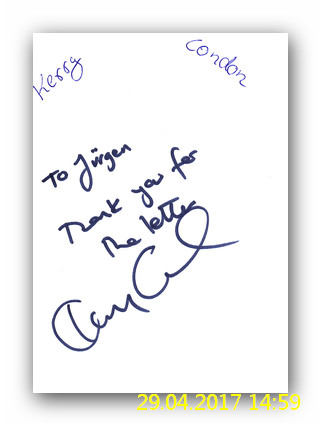 Kerry
Condon
To Jürgen
Thank you for
the letter
29.04.2017 14:59